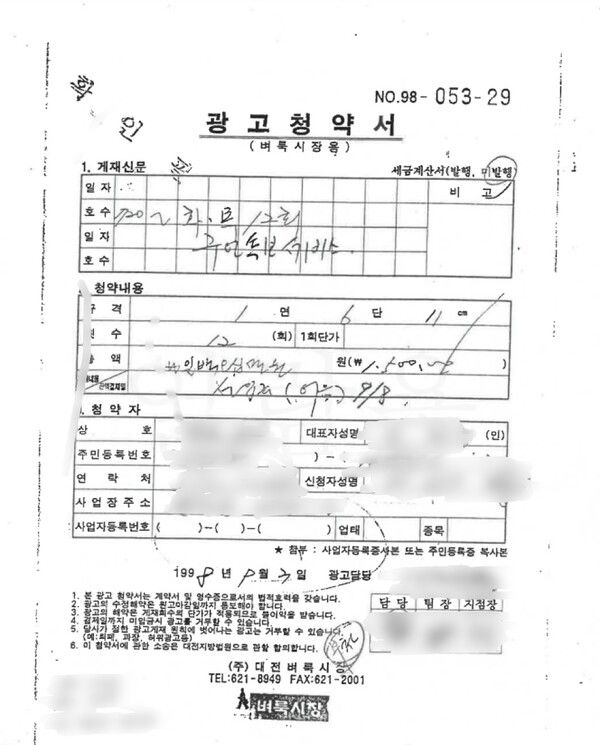 NO.98-053-29
인
광고청약서
(벼룩시장용)
1. 게재신문 세금계산서(발행, 미발행)
일자 비고
호수 화.목 12회
일자 구인 속보 서비스
호수
청약내용
규격 1 면 6 단 11 cm
횟수 12 (회) 1회단가
총액 일백오십만원 원(₩1,500,000)
잔액결제일 9/8
청약자
상호 대표자성명 (인)
주민등록번호 )-(
연락처 신청자성명
사업장주소
사업자등록번호 ( )-( )-( ) 업태 종목
★ 첨부 : 사업자등록증사본 또는 주민등록증 복사본
1998년 9월 3일 광고담당
1. 본 광고 청약서는 계약서 및 영수증으로서의 법적효력을 갖습니다.
2. 광고의 수정해약은 원고마감일까지 통보해야 합니다.
3. 광고의 해약은 게재회수로 단가가 적용되므로 불이익을 받습니다.
4. 결제일까지 미입금시 광고를 거부할 수 있습니다.
5. 당사가 정한 광고게재 원칙에 벗어나는 광고는 거부할 수 있습니다.
(예:퇴폐, 과장, 허위광고등)
6. 이 청약서에 관한 소송은 대전지방법원으로 관할 합의합니다.
담당 팀장 지점장
(주) 대전벼룩시장
TEL:621-8949 FAX:621-2001
벼룩시장